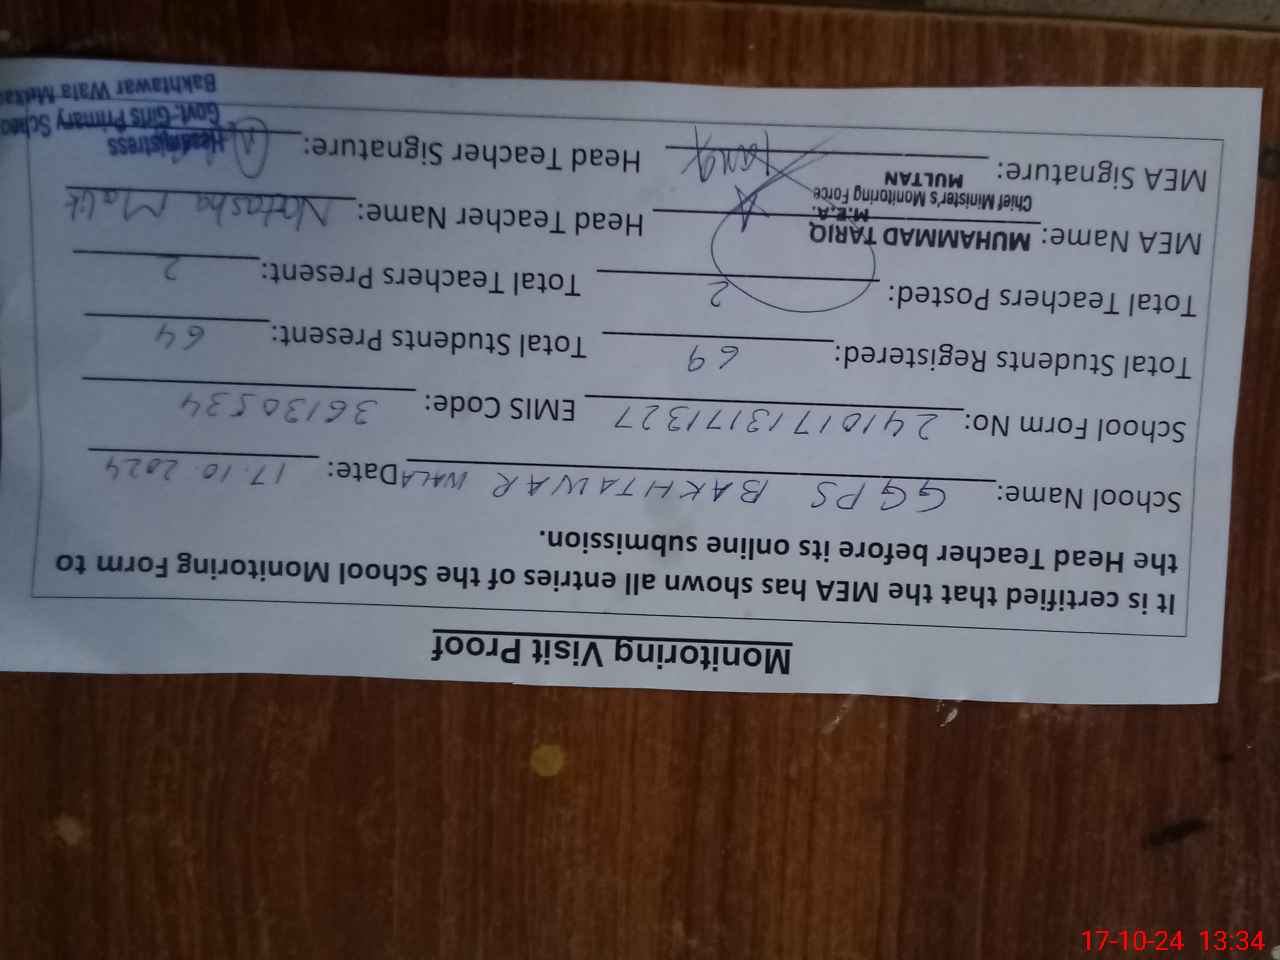 Monitoring Visit Proof
It is certified that the MEA has shown all entries of the School Monitoring Form to
the Head Teacher before its online submission.
School Name: GGPS BAKHTAWAR WALA Date: 17.10.2024
School Form No: 2410171317131327 EMIS Code: 36130534
Total Students Registered: 69 Total Students Present: 64
Total Teachers Posted: 2 Total Teachers Present: 2
MEA Name: MUHAMMAD TARIQ Head Teacher Name: Natasha Malik
M.E.A.
Chief Minister's Monitoring Force
MULTAN
MEA Signature: Tariq Head Teacher Signature:
Headmistress
Govt: Girls Primary School
Bakhtawar Wala
17-10-24 13:34